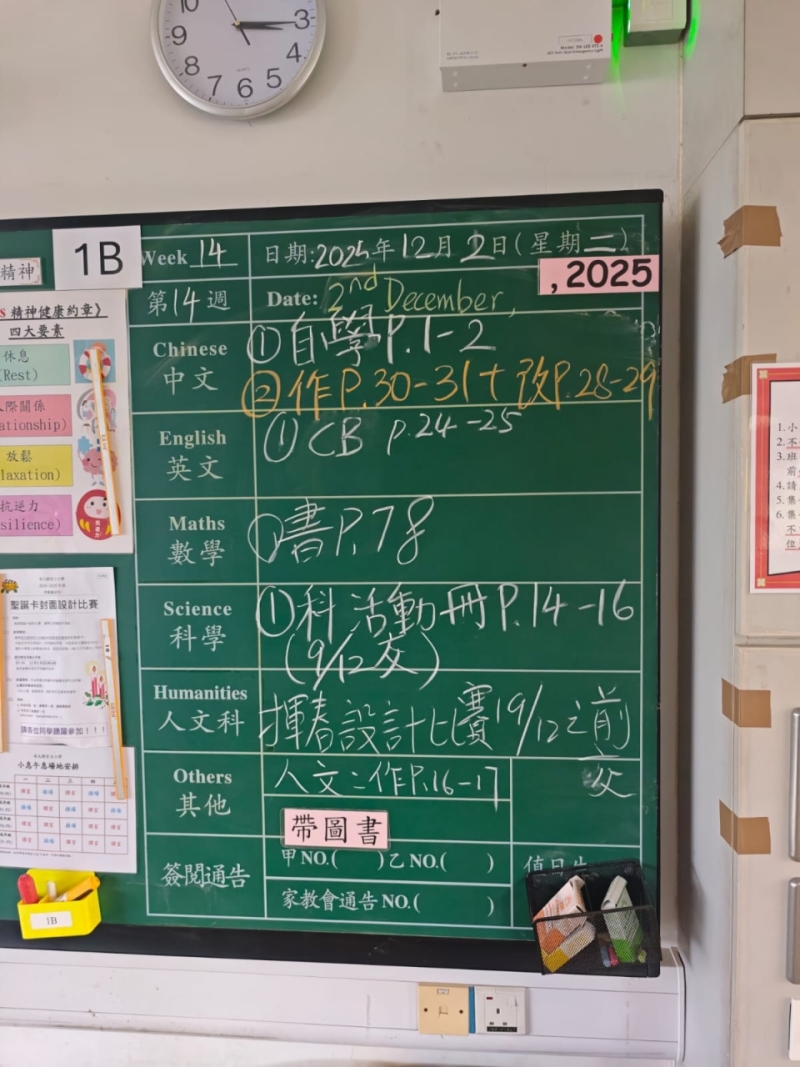 10
9
8
7
6
5
4
3
精神
1B
Week 14
日期:2025年12月2日(星期二)
第14週
Date: 2nd December,
, 2025
精神健康約章》
四大要素
休息
(Rest)
人際關係
ationship)
放鬆
laxation)
抗逆力
silience)
Chinese
中文
①自學P.1-2
②作P.30-31+改P.28-29
English
英文
①CB P.24-25
Maths
數學
①書P.78
Science
科學
①科活動冊P.14-16
(9/12交)
Humanities
人文科
揮春設計比賽19/12之前
交
Others
其他
人文:作P.16-17
帶圖書
簽閱通告
甲NO.( )乙NO.( )
值日生
家教會通告NO.( )
聖誕卡封面設計比賽
請各位同學踴躍參加!!!
小息午息場地安排
一 二 三 四 五
1B
1. 小
2. 不
3. 班
前
4. 請
5. 集
6. 集
不
位